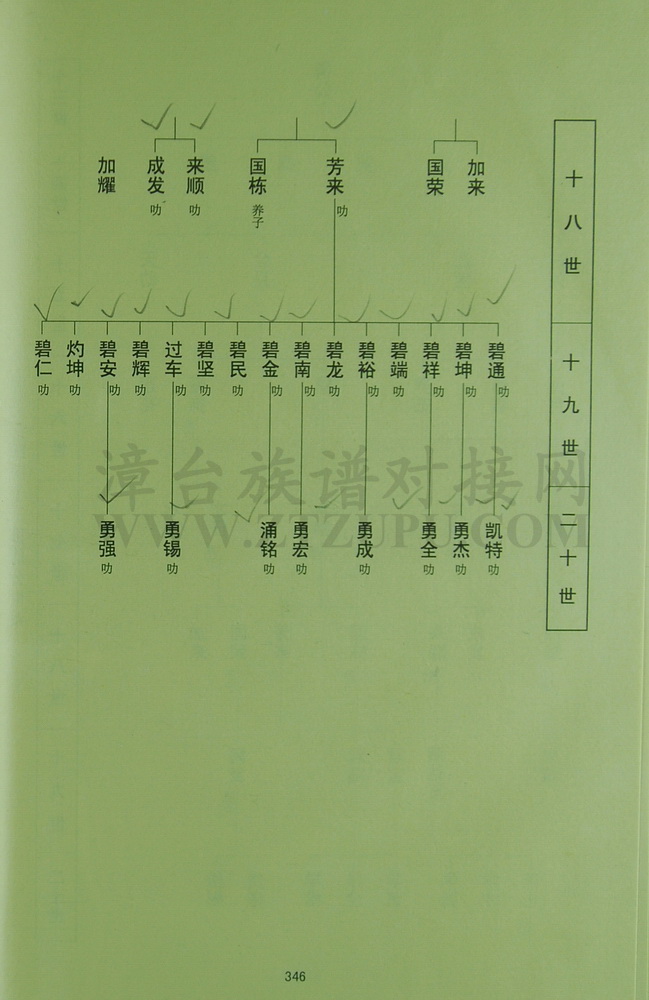 十八世
加来
国荣
芳来 叻
国栋 养子
来顺 叻
成发 叻
加耀
十九世
碧通 叻
碧坤 叻
碧祥 叻
碧端 叻
碧裕 叻
碧龙 叻
碧南 叻
碧金 叻
碧民 叻
碧坚 叻
过车 叻
碧辉 叻
碧安 叻
灼坤 叻
碧仁 叻
二十世
凯特 叻
勇杰 叻
勇全 叻
勇成 叻
勇宏 叻
涌铭 叻
勇锡 叻
勇强 叻
漳台族谱对接网
WWW.ZTZUPU.COM
346